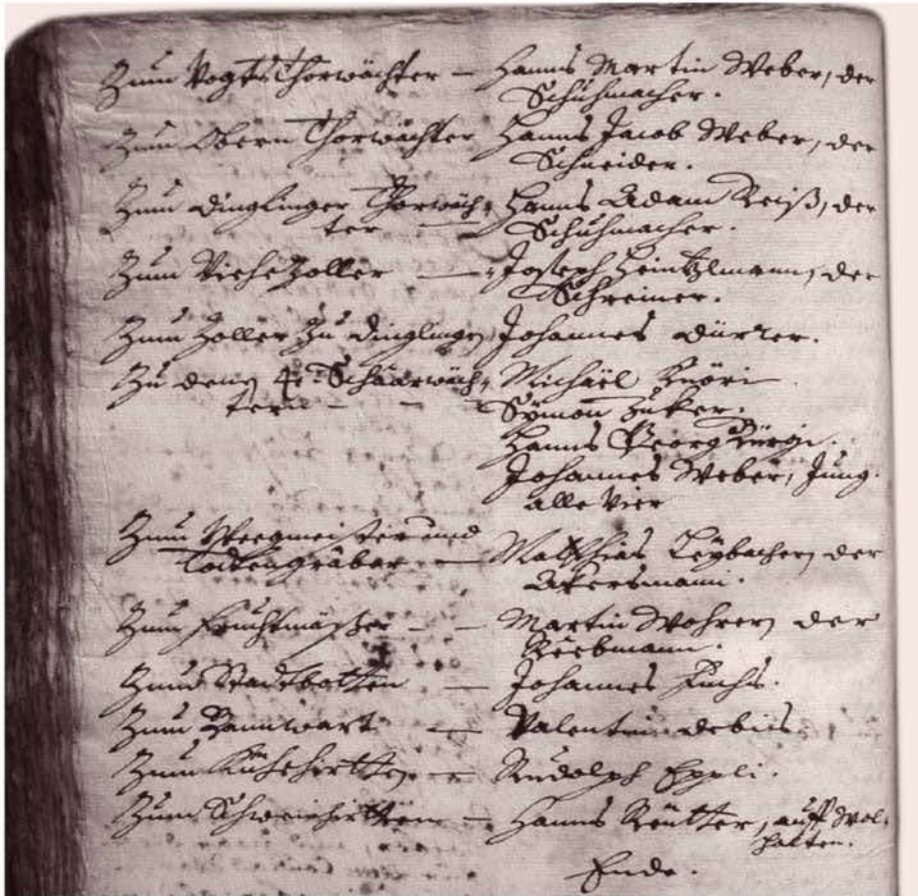 Zum Vogts Thorwächter — Hanns Martin Weber, der
Schuhmacher.
Zum Obern Thorwächter Hanns Jacob Weber, der
Schneider.
Zum Dinglinger Thorwäch- Hanns Adam Reiß, der
ter — Schuhmacher.
Zum Viehe Zoller — Joseph Heintzlmann, der
Schreiner.
Zum Zoller zu Dinglingen Johannes Dürrer.
Zu denen 4. Schaarwäch- Michaël Knöri
tern — Symon Zuker.
Hanns Georg Bürgi.
Johannes Weber, Jung.
alle Vier
Zum Weegmeister und
Todtengräber — Matthias Leybacher, der
Akersmann.
Zum Fruchtmäßer — Martin Wohrer, der
Reebmann.
Zum Stadtbotten — Johannes Fuchs.
Zum Bannwart — Valentin Debus
Zum Kühehirtten — Rudolph Eppli.
Zum Schweinhirtten — Hanns Reutter, auff Wol-
halten.
Ende.